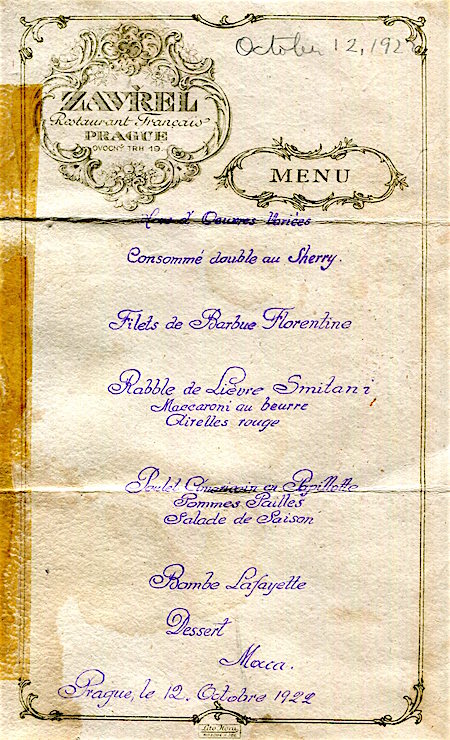 October 12, 192
ZAVŘEL
Restaurant Français
PRAGUE
OVOCNÝ TRH 19.
MENU
Hors d' Oeuvres Variées
Consommé double au Sherry.
Filets de Barbue Florentine
Rabble de Lièvre Smitani
Maccaroni au beurre
Airelles rouge
Poulet en Papillotte
Pommes Pailles
Salade de Saison
Bombe Lafayette
Dessert
Moca.
Prague, le 12. Octobre 1922